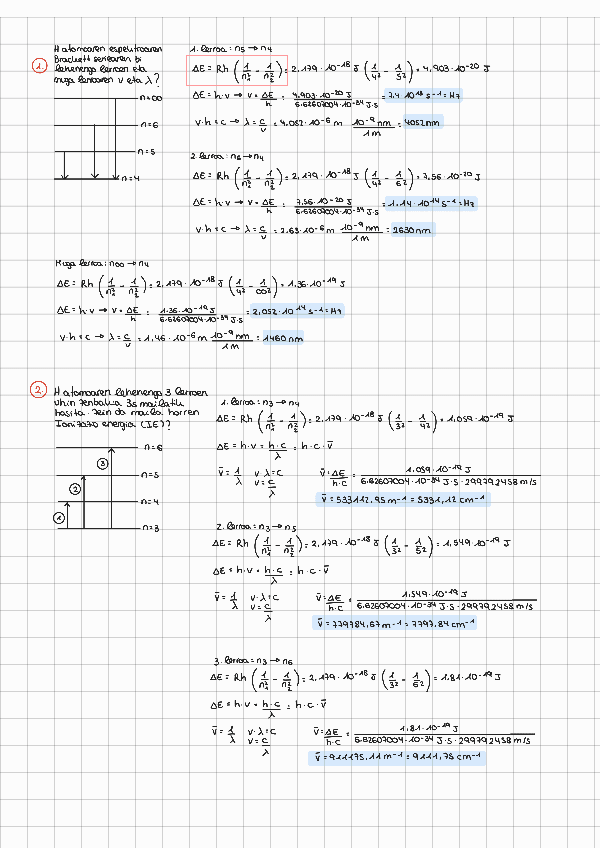 1.
H atomoaren espektroaren
Brackett seriearen bi
lehenengo lerroen eta
muga lerroaren ν eta λ?
n=∞
n=6
n=5
n=4
1. lerroa: n5 → n4
ΔE = Rh (1/n₁² - 1/n₂²) = 2,179·10⁻¹⁸ J (1/4² - 1/5²) = 4,903·10⁻²⁰ J
ΔE = h·ν → ν = ΔE/h = 4,903·10⁻²⁰ J / 6.62607004·10⁻³⁴ J·s = 7.4·10¹³ s⁻¹ = Hz
ν·h = c → λ = c/ν = 4,052·10⁻⁶ m 10⁻⁹ nm / 1 m = 4052 nm
2. lerroa: n6 → n4
ΔE = Rh (1/n₁² - 1/n₂²) = 2,179·10⁻¹⁸ J (1/4² - 1/6²) = 7,56·10⁻²⁰ J
ΔE = h·ν → ν = ΔE/h = 7,56·10⁻²⁰ J / 6.62607004·10⁻³⁴ J·s = 1.14·10¹⁴ s⁻¹ = Hz
ν·h = c → λ = c/ν = 2.63·10⁻⁶ m 10⁻⁹ nm / 1 m = 2630 nm
Muga lerroa: n∞ → n4
ΔE = Rh (1/n₁² - 1/n₂²) = 2,179·10⁻¹⁸ J (1/4² - 1/∞²) = 1,36·10⁻¹⁹ J
ΔE = h·ν → ν = ΔE/h = 1.36·10⁻¹⁹ J / 6.62607004·10⁻³⁴ J·s = 2,052·10¹⁴ s⁻¹ = Hz
ν·h = c → λ = c/ν = 1,46·10⁻⁶ m 10⁻⁹ nm / 1 m = 1460 nm
2.
H atomoaren lehenengo 3 lerroen
uhin zenbakia 3s mailatik
hasita. Zein da maila horren
Ionizazio energia (IE)?
n=6
n=5
n=4
n=3
1
2
3
1. lerroa: n3 → n4
ΔE = Rh (1/n₁² - 1/n₂²) = 2,179·10⁻¹⁸ J (1/3² - 1/4²) = 1,059·10⁻¹⁹ J
ΔE = h·ν = h·c/λ = h·c·ν̄
ν̄ = 1/λ ν·λ = c ν = c/λ ν̄ = ΔE/h·c = 1.059·10⁻¹⁹ J / 6.62607004·10⁻³⁴ J·s·299792458 m/s
ν̄ = 533112,95 m⁻¹ = 5331,12 cm⁻¹
2. lerroa: n3 → n5
ΔE = Rh (1/n₁² - 1/n₂²) = 2,179·10⁻¹⁸ J (1/3² - 1/5²) = 1,549·10⁻¹⁹ J
ΔE = h·ν = h·c/λ = h·c·ν̄
ν̄ = 1/λ ν·λ = c ν = c/λ ν̄ = ΔE/h·c = 1.549·10⁻¹⁹ J / 6.62607004·10⁻³⁴ J·s·299792458 m/s
ν̄ = 779784,67 m⁻¹ = 7797,84 cm⁻¹
3. lerroa: n3 → n6
ΔE = Rh (1/n₁² - 1/n₂²) = 2,179·10⁻¹⁸ J (1/3² - 1/6²) = 1,81·10⁻¹⁹ J
ΔE = h·ν = h·c/λ = h·c·ν̄
ν̄ = 1/λ ν·λ = c ν = c/λ ν̄ = ΔE/h·c = 1,81·10⁻¹⁹ J / 6.62607004·10⁻³⁴ J·s·299792458 m/s
ν̄ = 911175,11 m⁻¹ = 9111,75 cm⁻¹